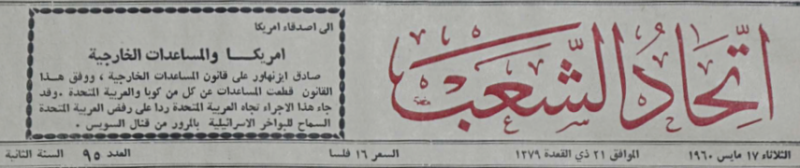 اتحاد الشعب
الى اصدقاء امريكا
امريكا والمساعدات الخارجية
صادق ايزنهاور على قانون المساعدات الخارجية ، ووفق هذا
القانون قطعت المساعدات عن كل من كوبا والعربية المتحدة . وقد
جاء هذا الاجراء تجاه العربية المتحدة ردا على رفض العربية المتحدة
السماح للبواخر الاسرائيلية بالمرور من قنال السويس .
الثلاثاء ١٧ مايس ١٩٦٠ الموافق ٢١ ذي القعدة ١٣٧٩ السعر ١٦ فلسا العدد ٩٥ السنة الثانية